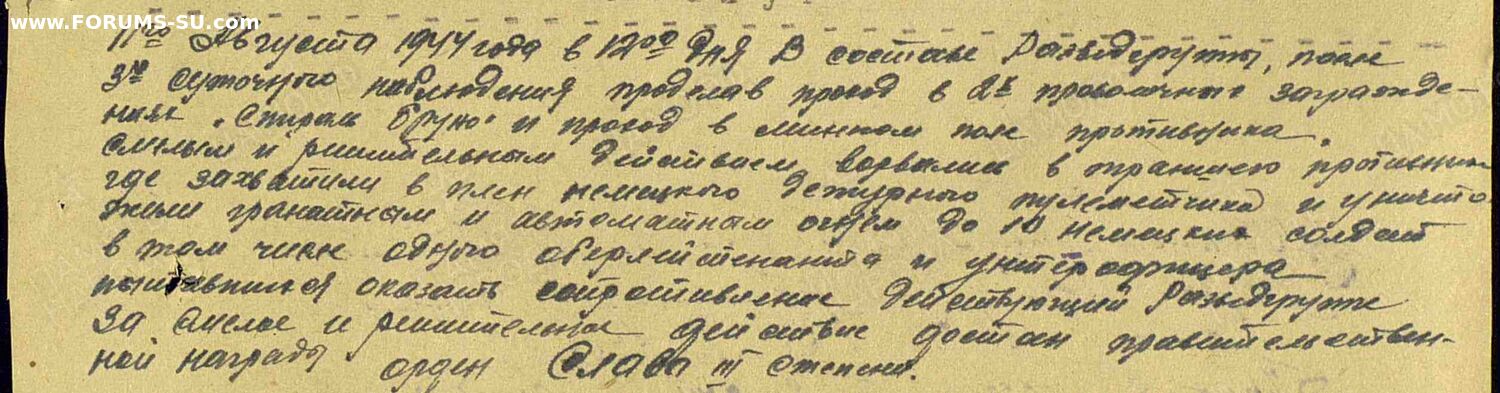 www.FORUMS-SU.com
11го Августа 1944 года в 12°° дня В составе Разведгрупы, после
3х суточного наблюдения проделав проход в 2х проволочных загражде-
ниях "Спираль Бруно" и проход в минном поле противника,
смелым и решительным действием ворвались в траншею противника
где захватили в плен немецкого дежурного пулеметчика и уничто-
жили гранатным и автоматным огнём до 10 немецких солдат
в том числе одного оберлейтенанта и унтерофицера
пытавшихся оказать сопротивление действующий Разведгрупе
За смелое и решительное действие достоин правительствен-
ной награды орден Слава III степени.